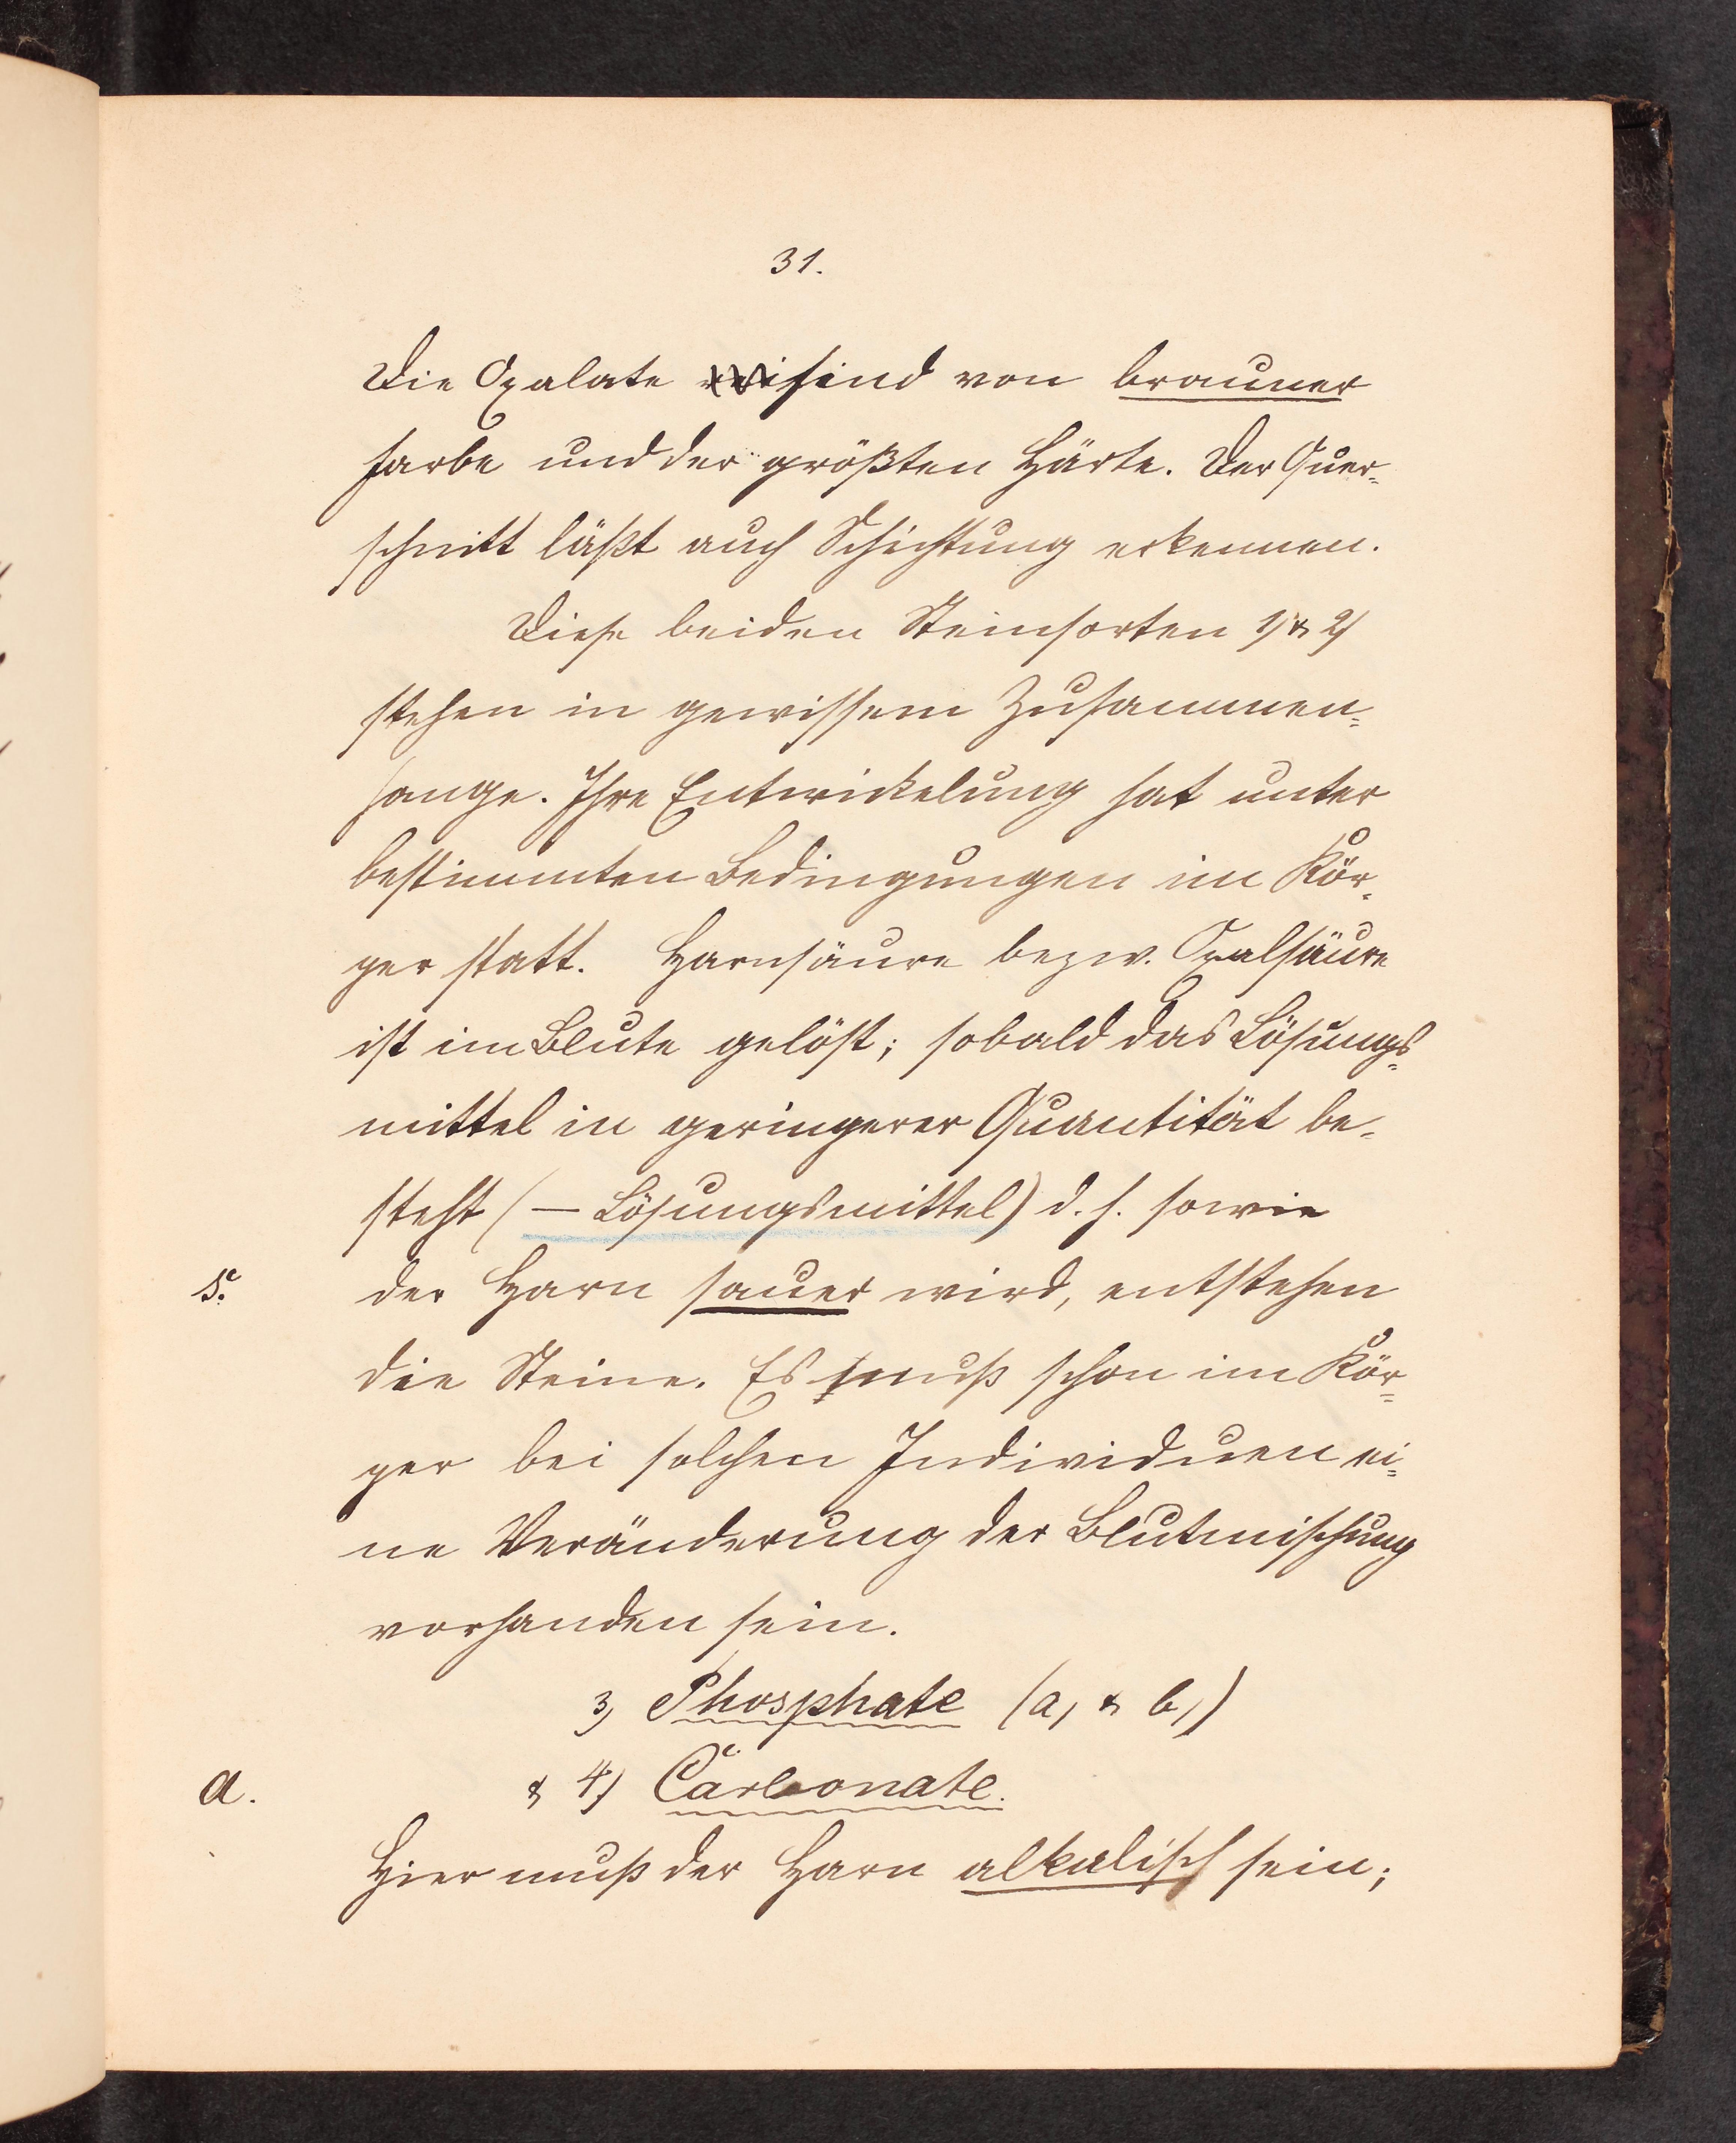 31.
Die Oxalate sind von brauner
Farbe und der größten Härte. Der Quer-
schnitt läßt auch Schichtung erkennen.
Diese beiden Steinsorten 1) & 2)
stehen in gewissem Zusammen-
hange. Ihre Entwickelung hat unter
bestimmten Bedingungen im Kör-
per statt. Harnsäure bezw. Oxalsäure
ist im Blute gelöst; sobald das Lösungs-
mittel in geringerer Quantität be-
steht (— Lösungsmittel) d. h. sowie
s. der Harn sauer wird, entstehen
die Steine. Es muß schon im Kör-
per bei solchen Individuen ei-
ne Veränderung der Blutmischung
vorhanden sein.
3) Phosphate (a, & b,)
a. & 4) Carbonate.
Hier muß der Harn alkalisch sein;